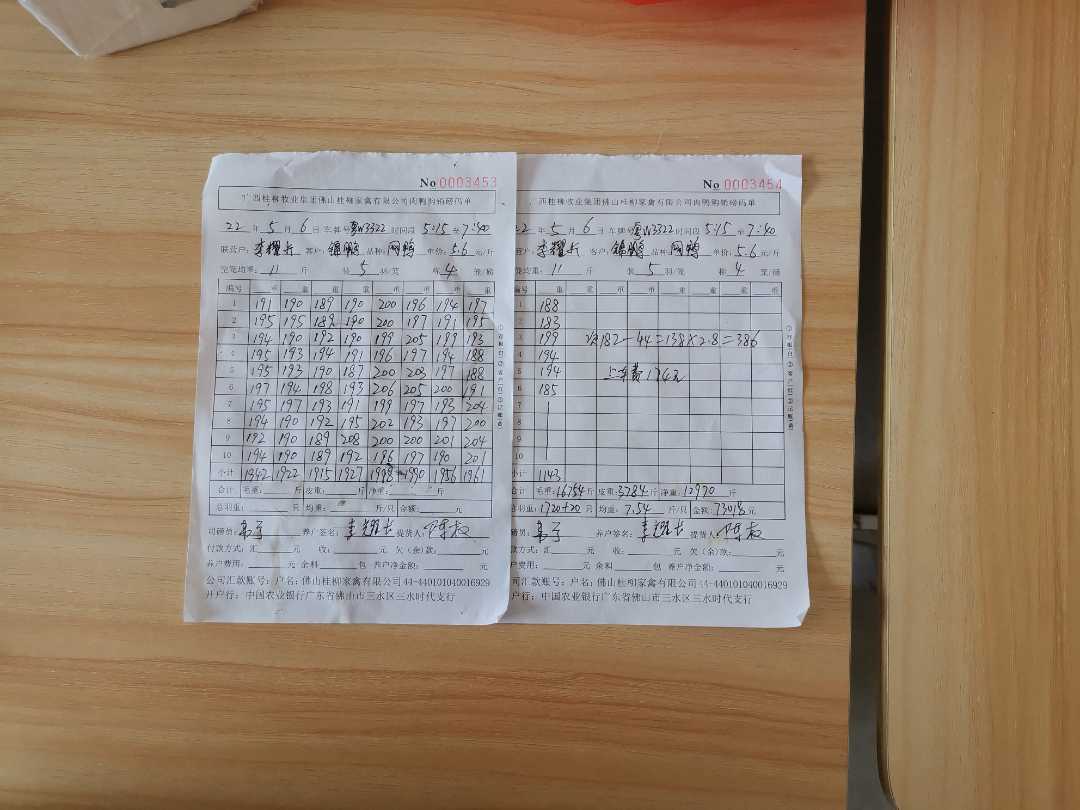 No 0003453
广西桂柳牧业集团佛山桂柳家禽有限公司肉鸭购销磅码单
22年5月6日 车牌号 粤W3322 时间段 5:15至7:40
联营户: 李耀 客户: 锦鹏 品种: 网鸭 单价: 5.6元/斤
空笼均重: 11斤 装5羽/笼 称4笼/磅
编号 重 重 重 重 重 重 重 重
1 191 190 189 190 200 196 194 197
2 195 195 189 190 200 197 191 195
3 194 190 192 190 199 205 199 193
4 195 193 194 191 196 197 194 188
5 195 193 190 187 200 203 197 188
6 197 194 198 193 206 205 200 191
7 195 197 193 191 199 197 193 204
8 194 190 192 195 202 193 197 200
9 192 190 189 208 200 200 201 204
10 194 190 189 192 196 197 190 201
小计 1942 1922 1915 1927 1998 1990 1956 1961
合计 毛重: 斤 皮重: 斤 净重: 斤
总羽重: 只 均重: 斤/只 金额: 元
司磅员: 养户签名: 提货人:
付款方式: 汇 元 收: 元 欠(余)款: 元
养户费用: 元 余料 包 养户净金额: 元
公司汇款账号: 户名: 佛山桂柳家禽有限公司44-440101040016929
开户行: 中国农业银行广东省佛山市三水区三水时代支行
①存根白②客户红③记账黄
No 0003454
西桂柳牧业集团佛山桂柳家禽有限公司肉鸭购销磅码单
22年5月6日 车牌号 粤W3322 时间段 5:15至7:40
联营户: 李耀 客户: 锦鹏 品种: 网鸭 单价: 5.6元/斤
空笼均重: 11斤 装5羽/笼 称4笼/磅
编号 重 重 重 重 重 重 重 重
1 188
2 183
3 199 次182-44=138×2.8=386
4 194
5 194 上车费174元
6 185
7
8
9
10
小计 1143
合计 毛重: 16754斤 皮重: 3784斤 净重: 12970斤
总羽重: 1720+20只 均重: 7.54斤/只 金额: 73018元
司磅员: 养户签名: 提货人:
付款方式: 汇 元 收: 元 欠(余)款: 元
养户费用: 元 余料 包 养户净金额: 元
公司汇款账号: 户名: 佛山桂柳家禽有限公司44-440101040016929
户行: 中国农业银行广东省佛山市三水区三水时代支行
①存根白②客户红③记账黄